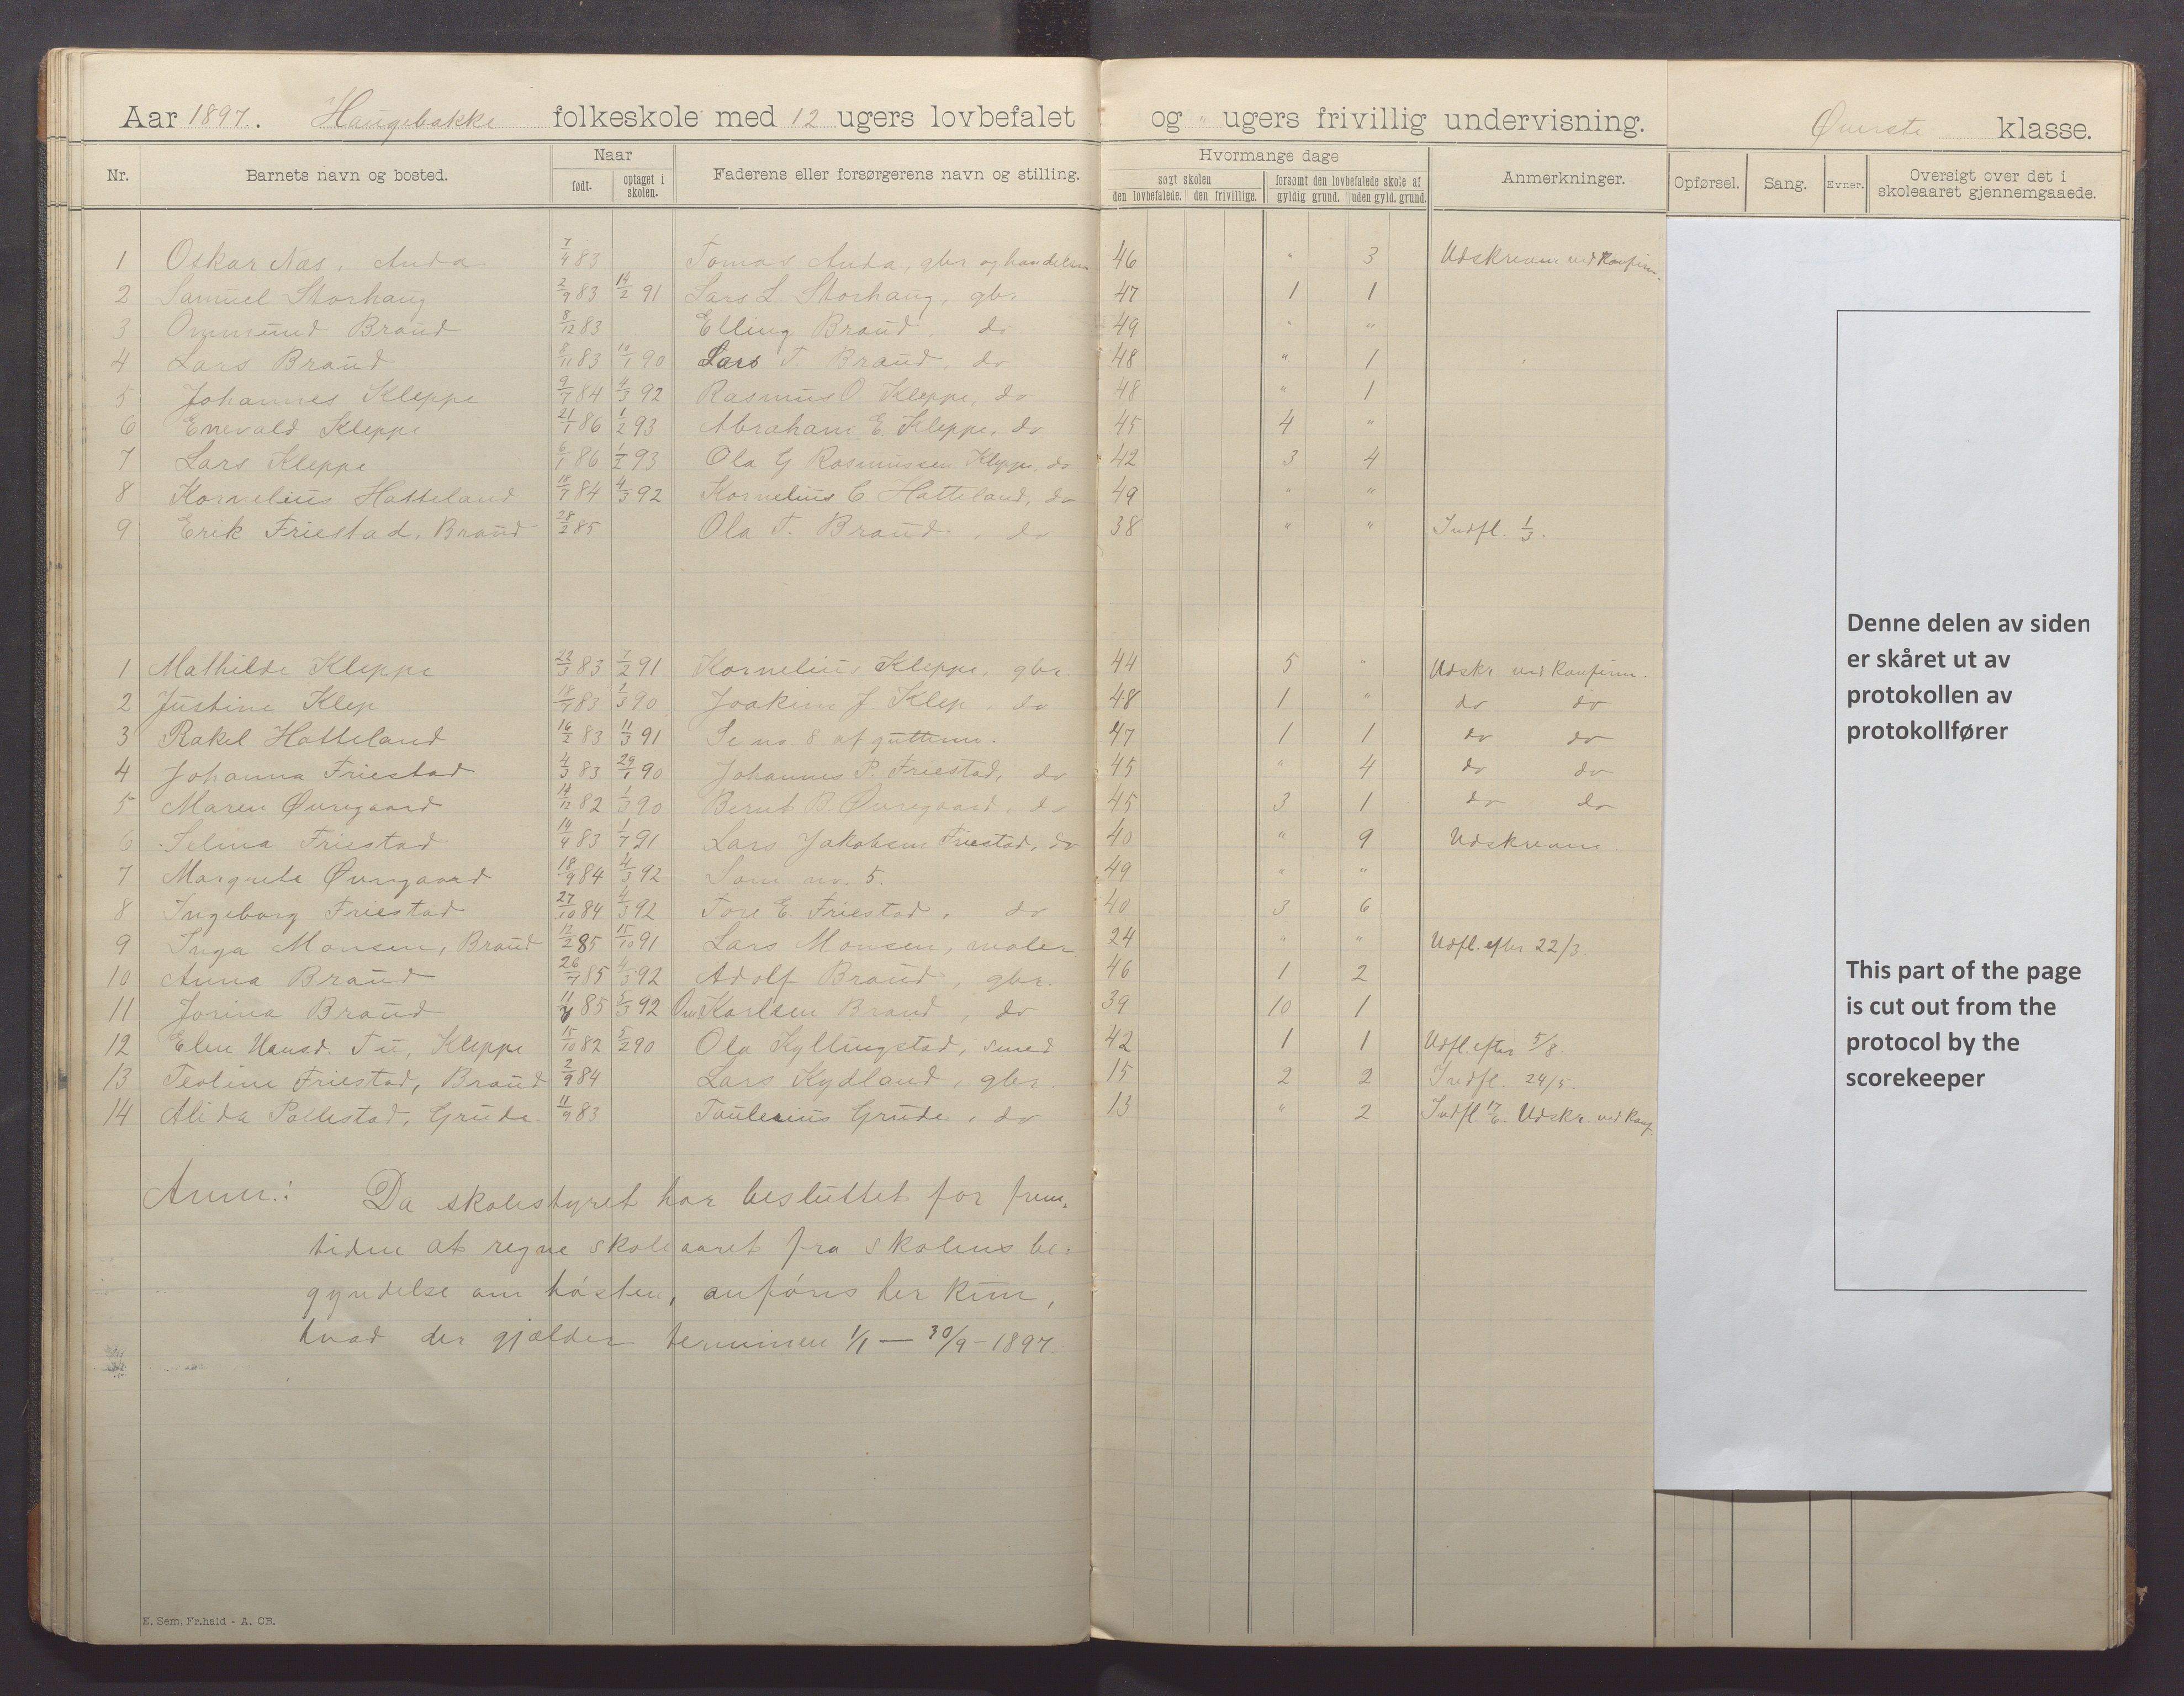 Aar 1897. Haugebakke folkeskole med 12 ugers lovbefalet og " ugers frivillig undervisning. Øverste klasse.
Nr. Barnets navn og bosted. Naar født. optaget i skolen. Faderens eller forsørgerens navn og stilling. Hvormange dage søgt skolen den lovbefalede. den frivillige. forsømt den lovbefalede skole af gyldig grund. uden gyld. grund. Anmerkninger. Opførsel. Sang. Evner. Oversigt over det i skoleaaret gjennemgaaede.
1 Oskar Næs, Anda 7/4 83 Tomas Anda, gbr og handelsm 46 " 3 Udskreven ved Konfirm.
2 Samuel Storhaug 2/9 83 14/2 91 Lars L. Storhaug, gbr. 47 1 1
3 Ommund Braud 8/12 83 Elling Braud, do 49 " "
4 Lars Braud 8/11 83 10/1 90 Lars T. Braud, do 48 " 1
5 Johannes Kleppe 9/7 84 4/3 92 Rasmus O. Kleppe, do 48 " 1
6 Enevald Kleppe 21/1 86 1/2 93 Abraham E. Kleppe, do 45 4 "
7 Lars Kleppe 6/1 86 1/2 93 Ola G Rasmussen Kleppe, do 42 3 4
8 Kornelius Hatteland 18/7 84 4/3 92 Kornelius C. Hatteland, do 49 " "
9 Erik Friestad, Braud 28/2 85 Ola T. Braud, do 38 " " Indfl. 1/3.
1 Mathilde Kleppe 22/3 83 7/2 91 Kornelius Kleppe, gbr. 44 5 " Udskr. ved Konfirm.
2 Justine Klep 18/1 83 1/3 90 Joakim J. Klep, do 48 1 " do do
3 Rakel Hatteland 16/2 83 11/3 91 Se no 8 af guttene. 47 1 1 do do
4 Johanna Friestad 4/3 83 29/1 90 Johannes P. Friestad, do 45 " 4 do do
5 Maren Øvregaard 14/12 82 1/3 90 Bernt B. Øvregaard, do 45 3 1 do do
6 Selina Friestad 14/4 83 1/7 91 Lars Jakobsen Friestad, do 40 " 9 Udskreven.
7 Margrete Øvregaard 18/9 84 4/3 92 Som no. 5. 49 " "
8 Ingeborg Friestad 27/10 84 4/3 92 Tore E. Friestad, do 40 3 6
9 Inga Monsen, Braud 12/2 85 15/10 91 Lars Monsen, maler 24 " " Udfl. efter 22/3.
10 Anna Braud 26/7 85 4/3 92 Adolf Braud, gbr. 46 1 2
11 Jorina Braud 85 5/3 92 Karlsen Braud, do 39 10 1
12 Elen Hansd. Tu, Kleppe 15/10 82 5/2 90 Ola Kyllingstad, smed 42 1 1 Udfl. efter 5/8.
13 Teoline Friestad, Braud 2/9 84 Lars Kydland, gbr. 15 2 2 Indfl. 24/5.
14 Alida Pollestad, Grude. 11/9 83 Taulerius Grude, do 13 " 2 Indfl. 17/6. Udskr. ved Konf.
Anm.: Da skolestyret har besluttet for frem-
tiden at regne skoleaaret fra skolens be-
gyndelse om høsten, anføres her kun,
hvad der gjælder terminen 1/1 — 30/9 - 1897.
E. Sem, Fr.hald - A. CB.
Denne delen av siden
er skåret ut av
protokollen av
protokollfører
This part of the page
is cut out from the
protocol by the
scorekeeper